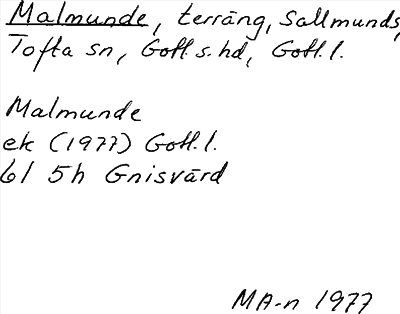 Malmunde, terräng, Sallmunds,
Tofta sn, Gotl. s. hd, Gotl. l.
Malmunde
ek (1977) Gotl. l.
6I 5h Gnisvärd
MA-n 1977